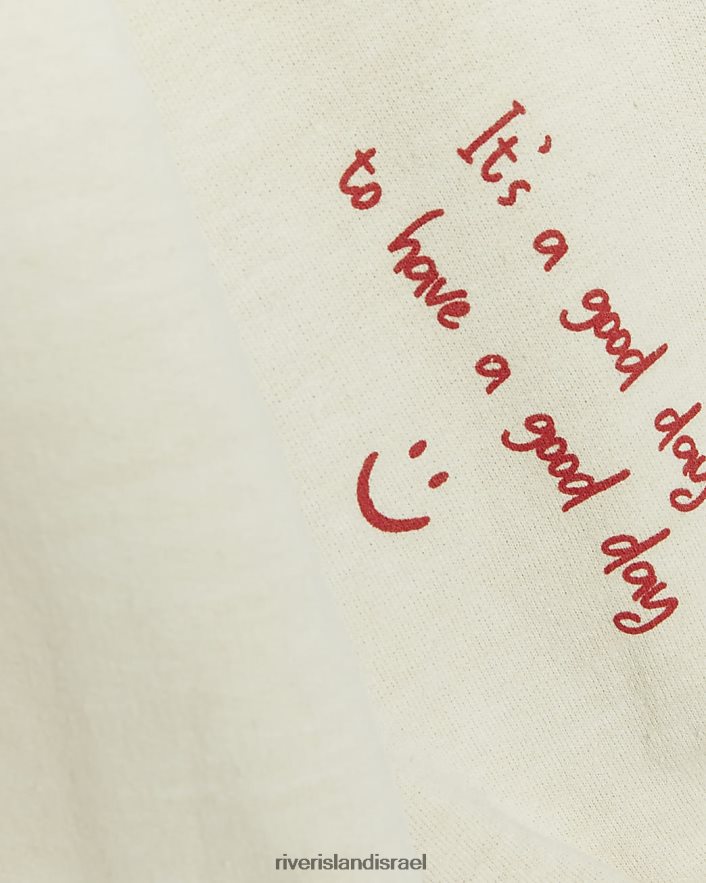 It's a good day
to have a good day
riverislandisrael